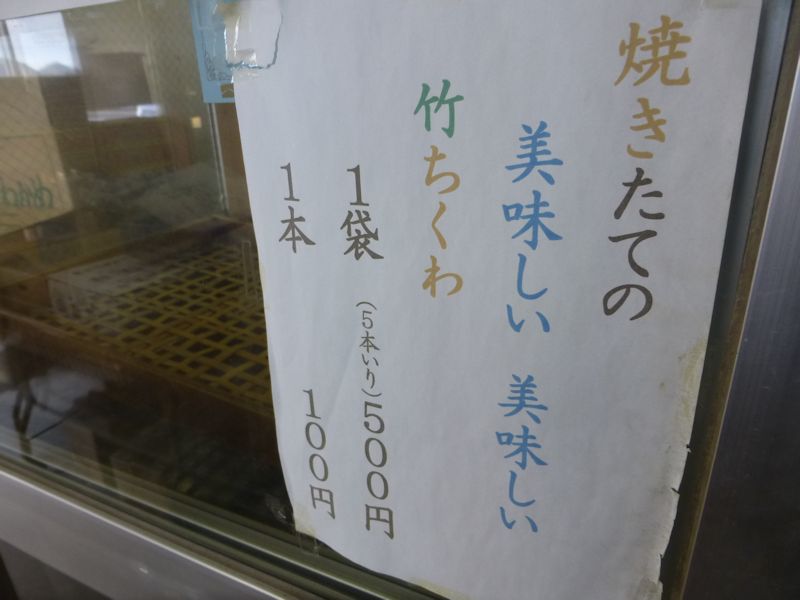 焼きたての
美味しい 美味しい
竹ちくわ
1袋(5本いり)500円
1本 100円